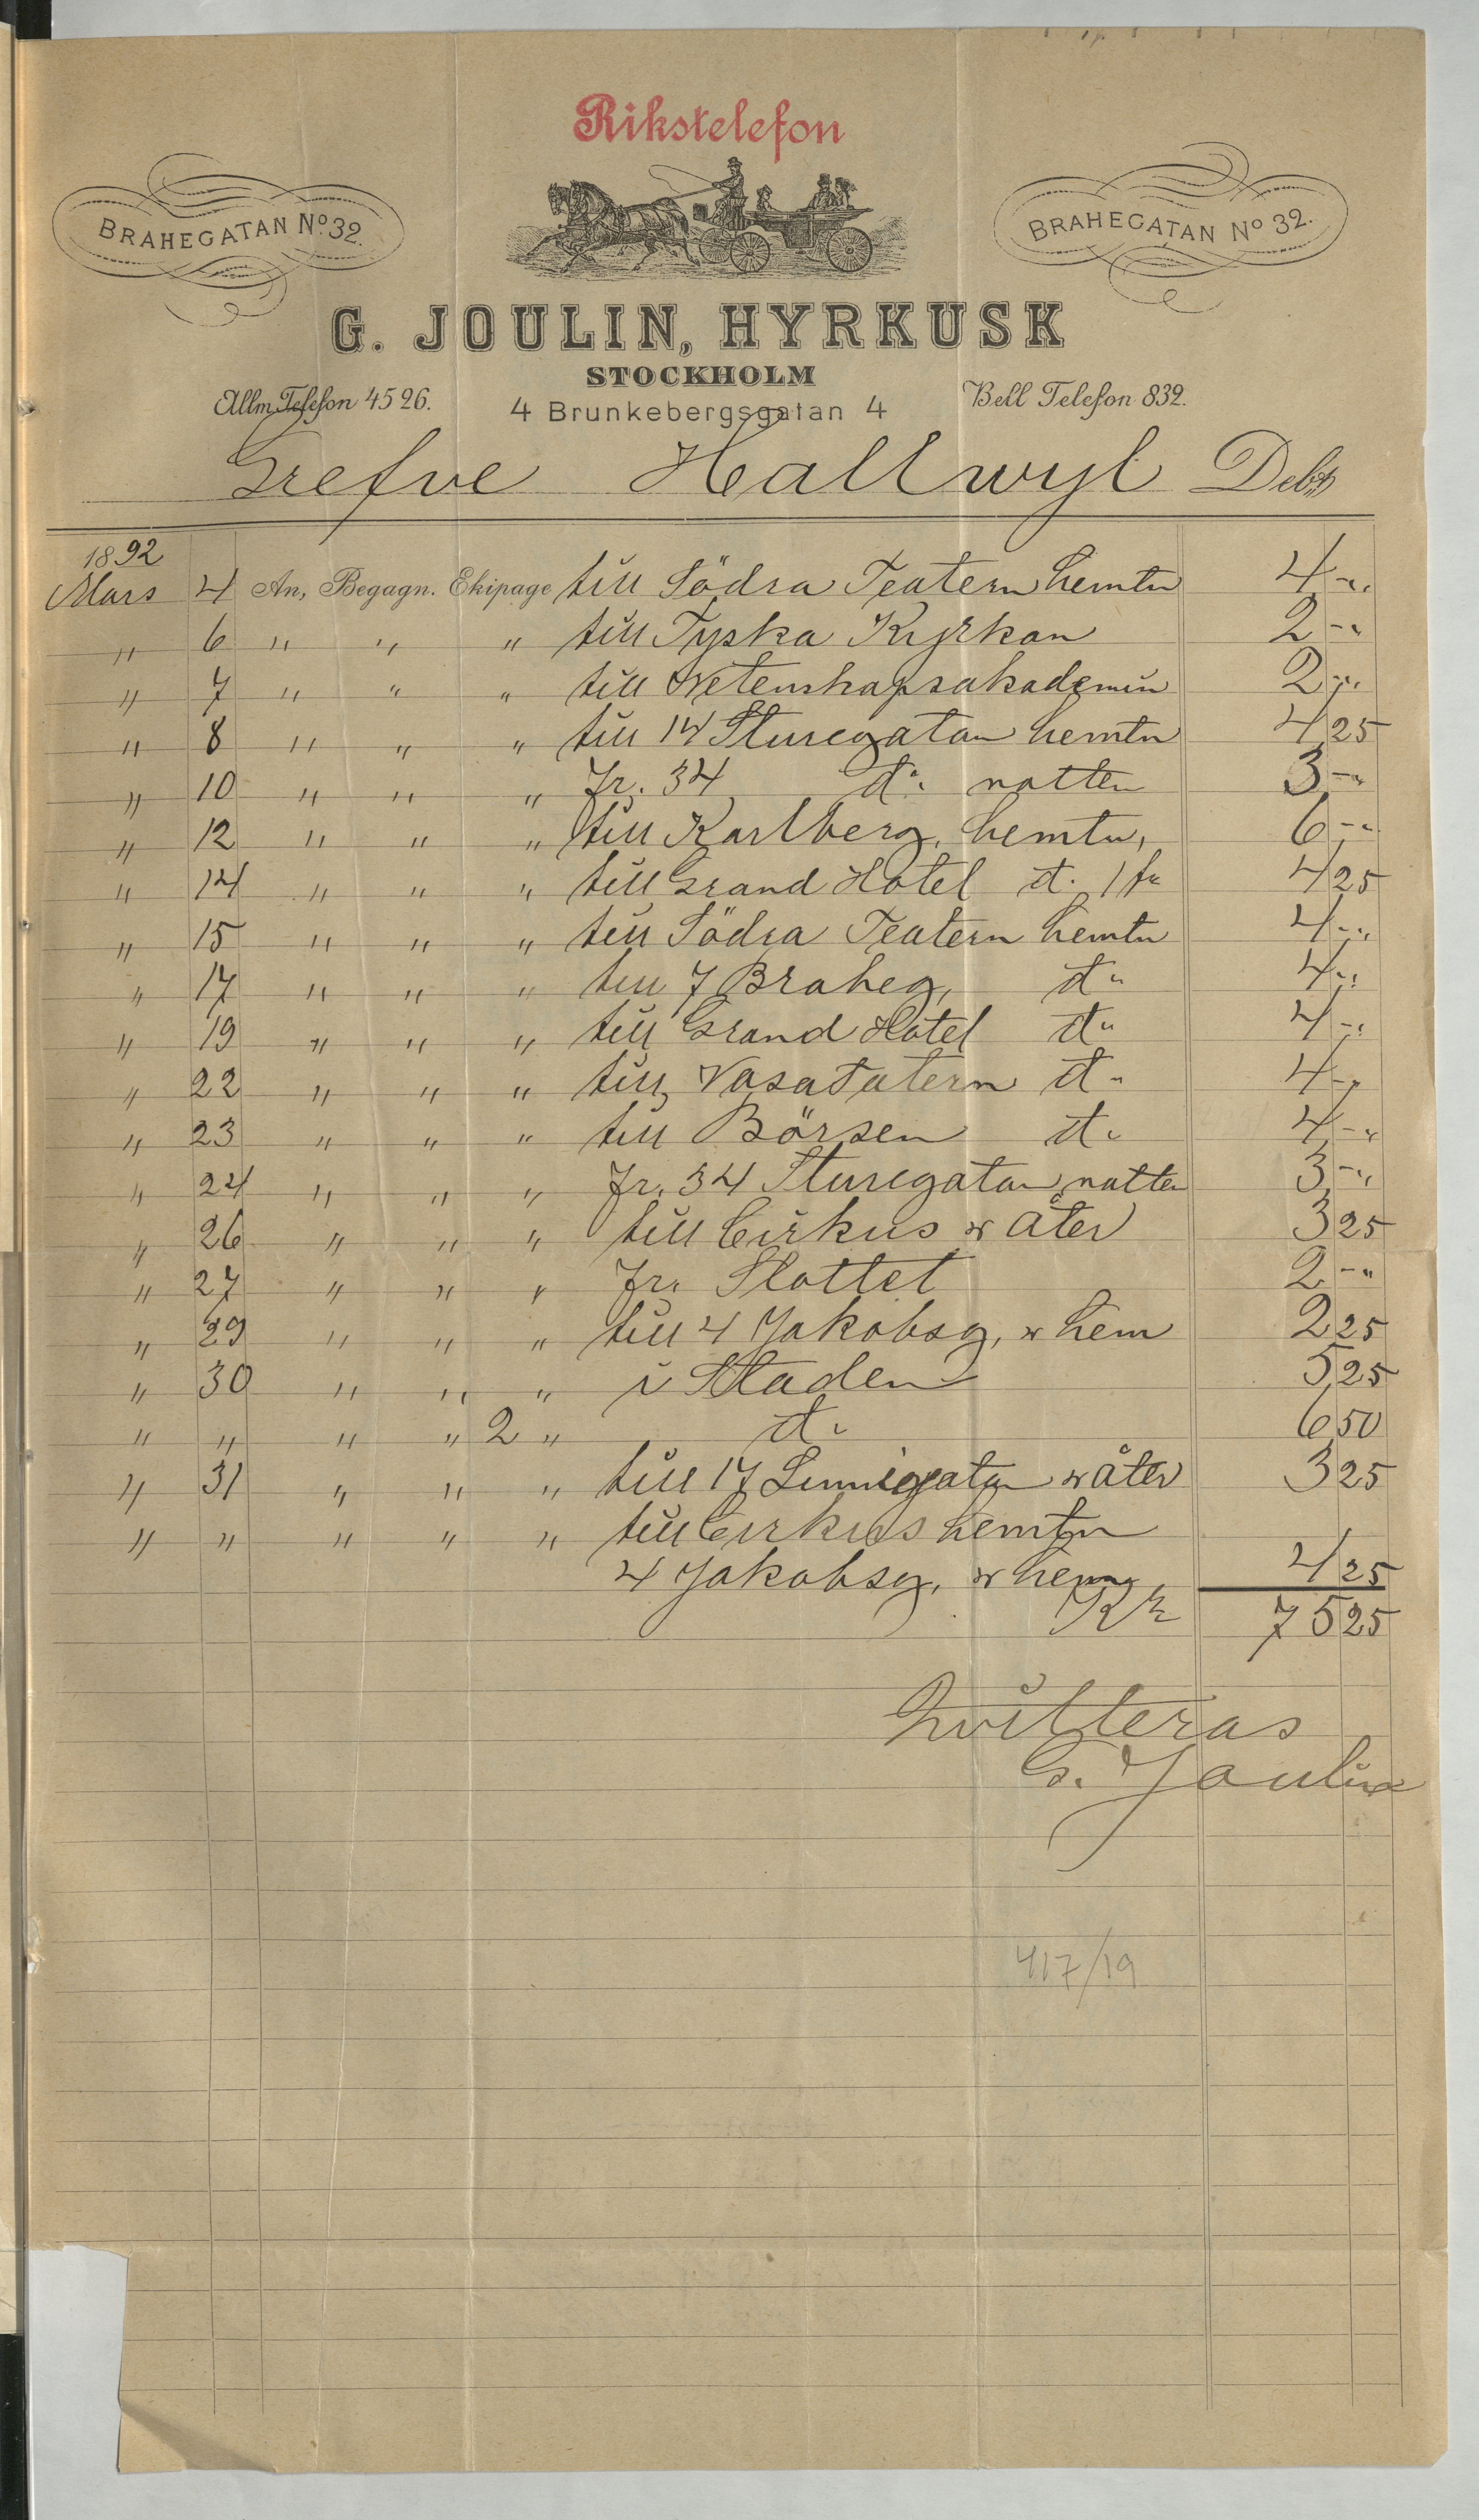 Rikstelefon
BRAHEGATAN No 32.
BRAHEGATAN No 32.
G. JOULIN, HYRKUSK
STOCKHOLM
Allm. Telefon 4526.
4 Brunkebergsgatan 4
Bell Telefon 832.
Grefve Hallwyl Debt
1892
Mars 4 An, Begagn. Ekipage till Södra Teatern hemtn 4 -"
" 6 " " " till Tyska Kyrkan 2 -"
" 7 " " " till Wetenskapsakademin 2 -"
" 8 " " " till 14 Sturegatan hemtn 4 25
" 10 " " " Fr. 34 do natten 3 -"
" 12 " " " till Karlberg, hemtn, 6 -"
" 14 " " " till Grand Hotel do 1 4 25
" 15 " " " till Södra Teatern hemtn 4 -"
" 17 " " " till 7 Braheg, do 4 -"
" 19 " " " till Grand Hotel do 4 -"
" 22 " " " till Vasatatern do 4 -"
" 23 " " " till Börsen do 4 -"
" 24 " " " Fr. 34 Sturegatan natten 3 -"
" 26 " " " till Cirkus & åter 3 25
" 27 " " " Fr. Slottet 2 -"
" 29 " " " till 4 Jakobsg, & hem 2 25
" 30 " " " i Staden 5 25
" " " " 2 " do 6 50
" 31 " " " till 17 Linnégatan & åter 3 25
" " " " " till Cirkus hemtn
4 Jakobsg, & hem 4 25
Kr 75 25
Qvitteras
G. Joulin
417/19